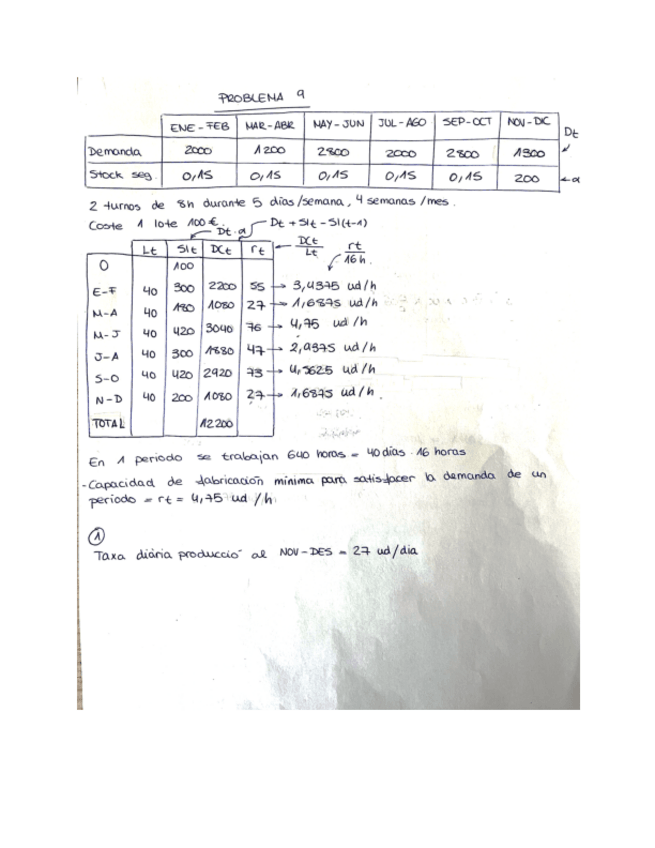 PROBLEMA 9
ENE-FEB MAR-ABR MAY-JUN JUL-AGO SEP-OCT NOV-DIC Dt
Demanda 2000 1200 2800 2000 2800 1300
Stock seg. 0,15 0,15 0,15 0,15 0,15 200 ←α
2 turnos de 8h durante 5 días/semana, 4 semanas/mes.
Coste 1 lote 100€. Dt·α Dt + SIt - SI(t-1)
Lt SIt DCt rt ← DCt/Lt rt/16h.
0 100
E-F 40 300 2200 55 → 3,4375 ud/h
M-A 40 180 1080 27 → 1,6875 ud/h
M-J 40 420 3040 76 → 4,75 ud/h
J-A 40 300 1880 47 → 2,9375 ud/h
S-O 40 420 2920 73 → 4,5625 ud/h
N-D 40 200 1080 27 → 1,6875 ud/h.
TOTAL 12200
En 1 periodo se trabajan 640 horas = 40 días · 16 horas
- Capacidad de fabricación mínima para satisfacer la demanda de un
periodo = rt = 4,75 ud/h
1
Taxa diària producció al NOV-DES = 27 ud/dia